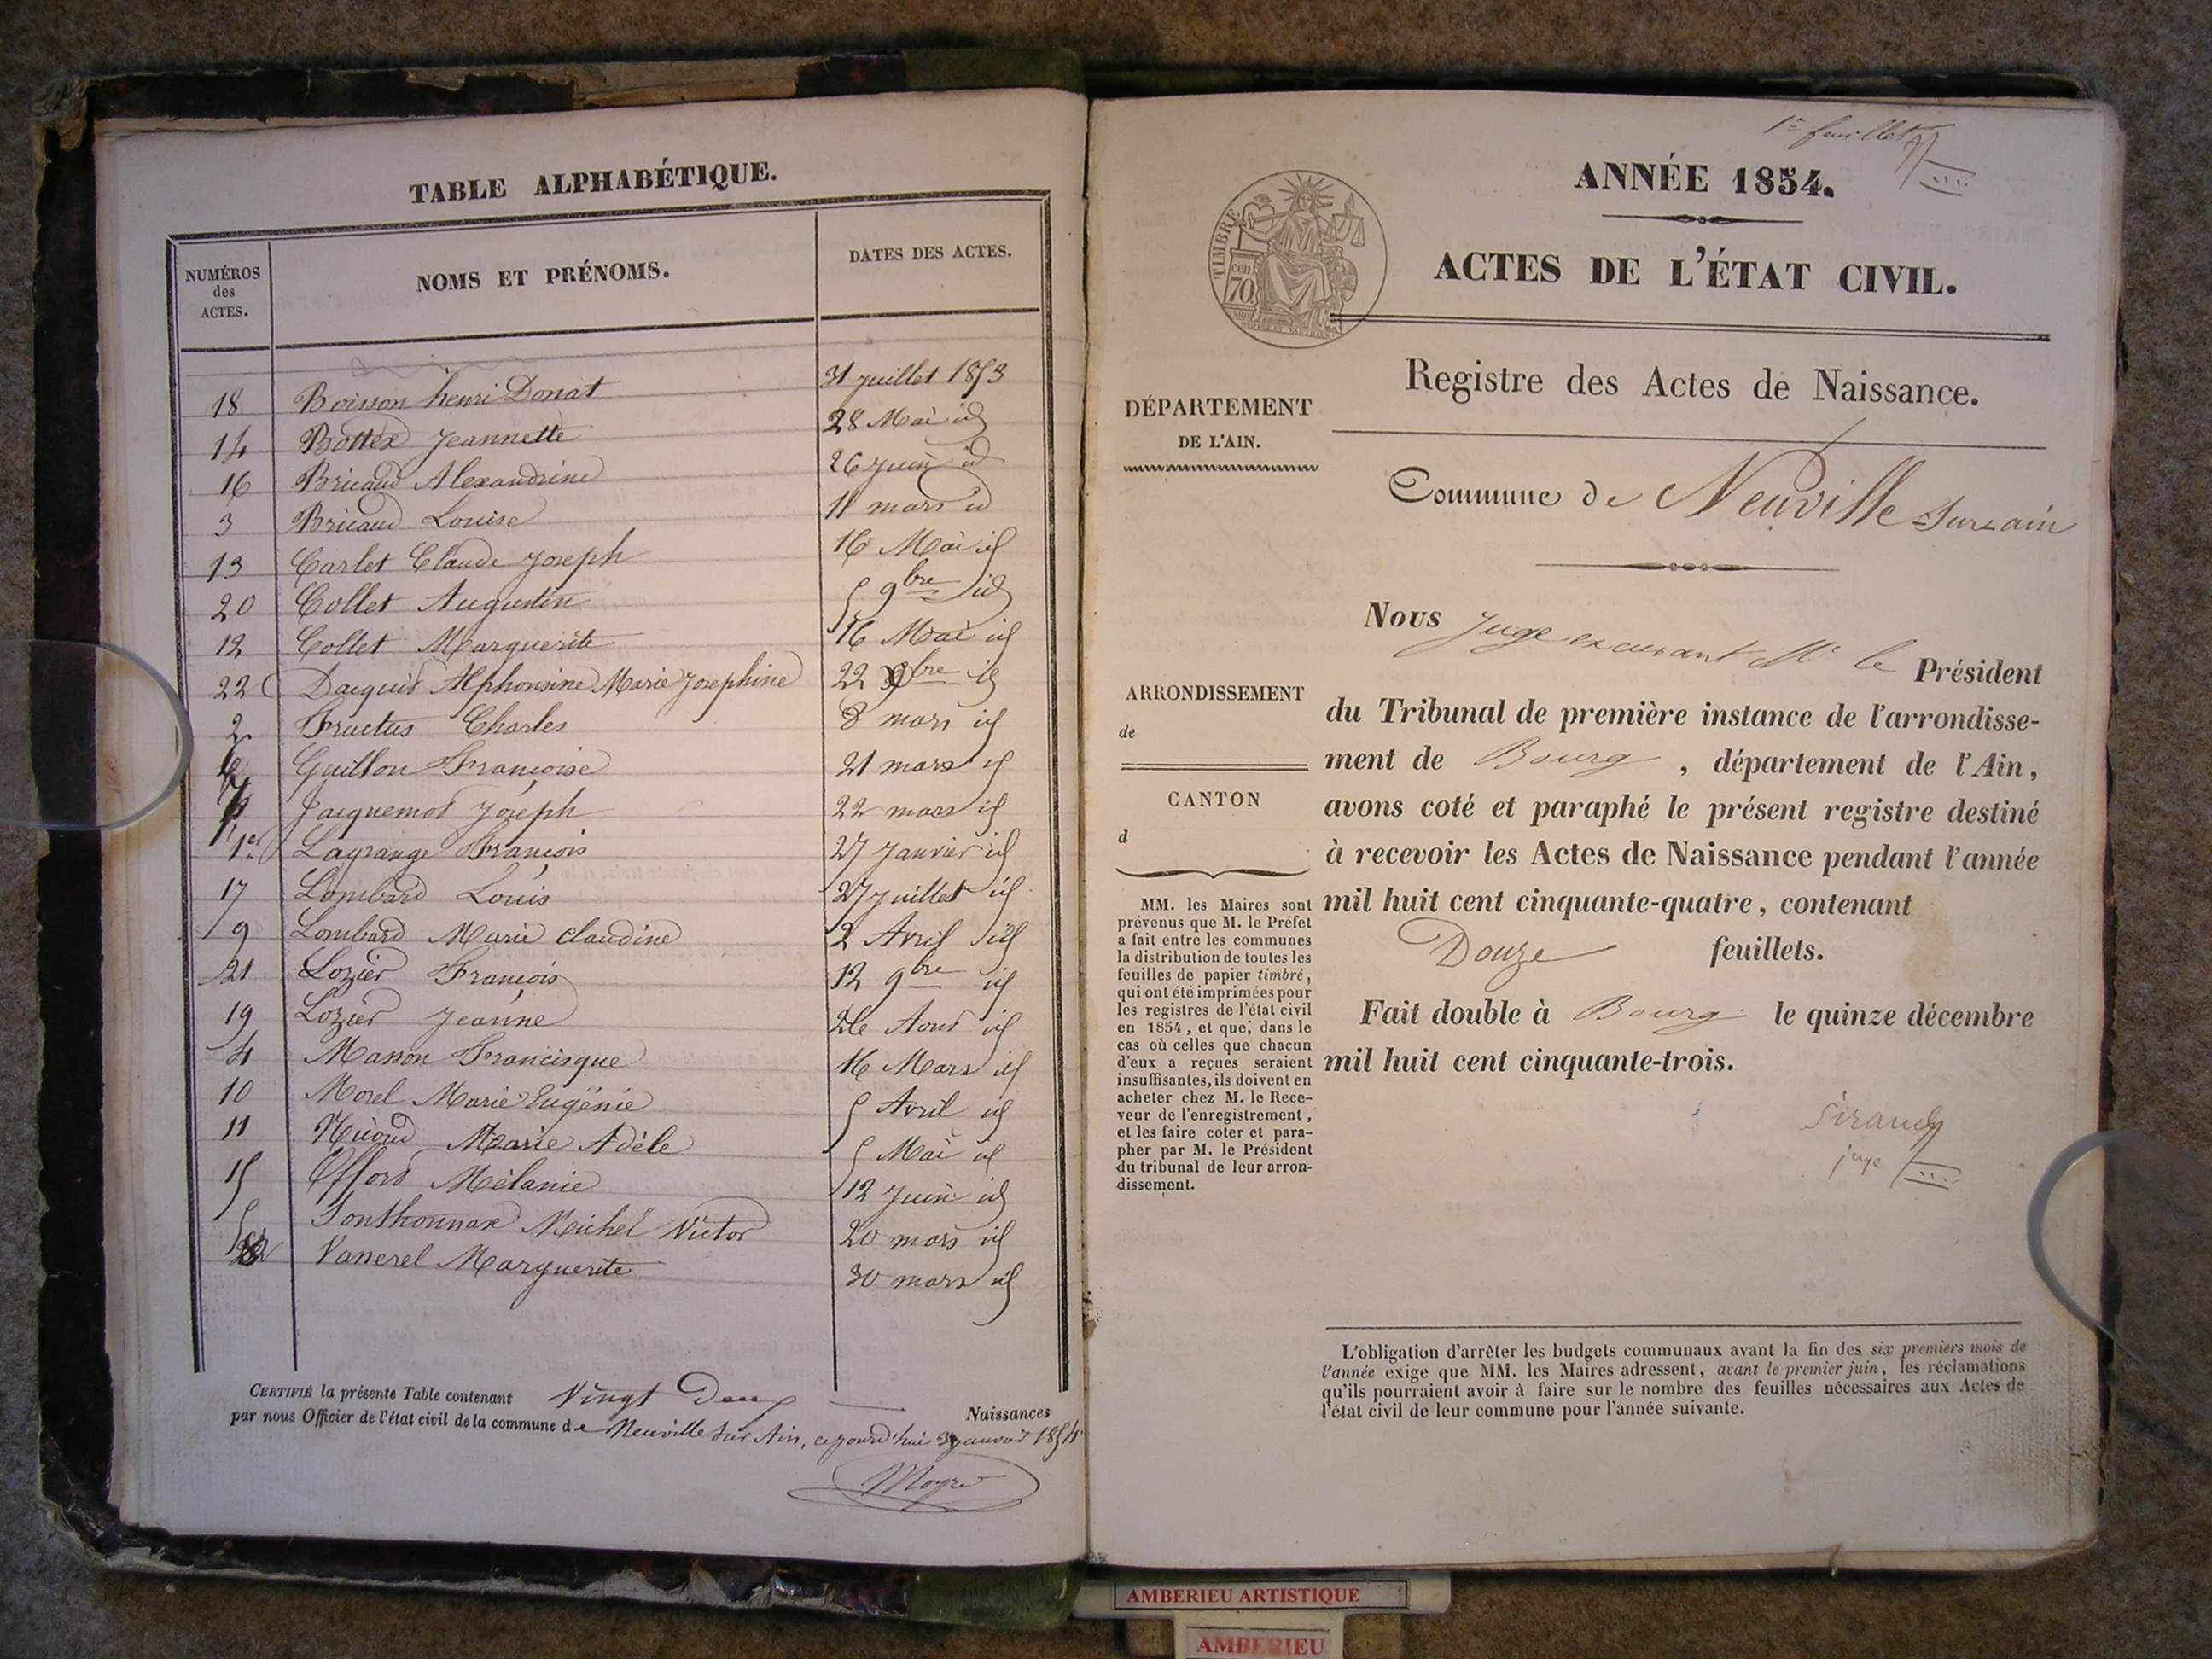 TABLE ALPHABÉTIQUE.
NUMÉROS des ACTES. NOMS ET PRÉNOMS. DATES DES ACTES.
18 Boisson henri Donat 31 juillet 1853
14 Bottex Jeannette 28 Mai id
16 Bricaud Alexandrine 26 juin id
3 Bricaud Louise 11 mars id
13 Carlet Claude Joseph 16 Mai id
20 Collet Augustin 5 9bre id
12 Collet Marguerite 16 Mai id
22 Dacquis Alphonsine Marie Josephine 22 9bre id
2 Fractus Charles 8 mars id
6 Guillon Françoise 21 mars id
7 Jacquemod Joseph 22 mars id
1er Lagrange François 27 Janvier id
17 Lombard Louis 27 juillet id
9 Lombard Marie Claudine 2 Avril id
21 Lozier François 12 9bre id
19 Lozier Jeanne 26 Aout id
4 Masson Francisque 16 Mars id
10 Morel Marie Eugénie 5 Avril id
11 Marie Adèle 5 Mai id
15 Mélanie 12 Juin id
5 Sonthonnax Michel Victor 20 mars id
8 Vanerel Marguerite 30 mars id
CERTIFIÉ la présente Table contenant Vingt Deux Naissances
par nous Officier de l'état civil de la commune de Neuville sur Ain, ce jourd'hui janvier 1854
1er feuillet
ANNÉE 1854.
ACTES DE L'ÉTAT CIVIL.
TIMBRE
cen
70
Registre des Actes de Naissance.
DÉPARTEMENT
DE L'AIN.
Commune de Neuville sur ain
ARRONDISSEMENT
de
CANTON
d
MM. les Maires sont
prévenus que M. le Préfet
a fait entre les communes
la distribution de toutes les
feuilles de papier timbré,
qui ont été imprimées pour
les registres de l'état civil
en 1854, et que, dans le
cas où celles que chacun
d'eux a reçues seraient
insuffisantes, ils doivent en
acheter chez M. le Rece-
veur de l'enregistrement,
et les faire coter et para-
pher par M. le Président
du tribunal de leur arron-
dissement.
Nous Juge excusant Mr le Président
du Tribunal de première instance de l'arrondisse-
ment de Bourg, département de l'Ain,
avons coté et paraphé le présent registre destiné
à recevoir les Actes de Naissance pendant l'année
mil huit cent cinquante-quatre, contenant
Douze feuillets.
Fait double à Bourg le quinze décembre
mil huit cent cinquante-trois.
juge
L'obligation d'arrêter les budgets communaux avant la fin des six premiers mois de
l'année exige que MM. les Maires adressent, avant le premier juin, les réclamations
qu'ils pourraient avoir à faire sur le nombre des feuilles nécessaires aux Actes de
l'état civil de leur commune pour l'année suivante.
AMBERIEU ARTISTIQUE
AMBERIEU